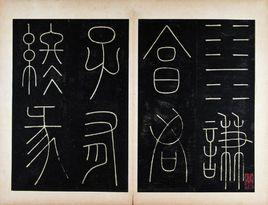 ䷎謙
亨君
子有
終彖